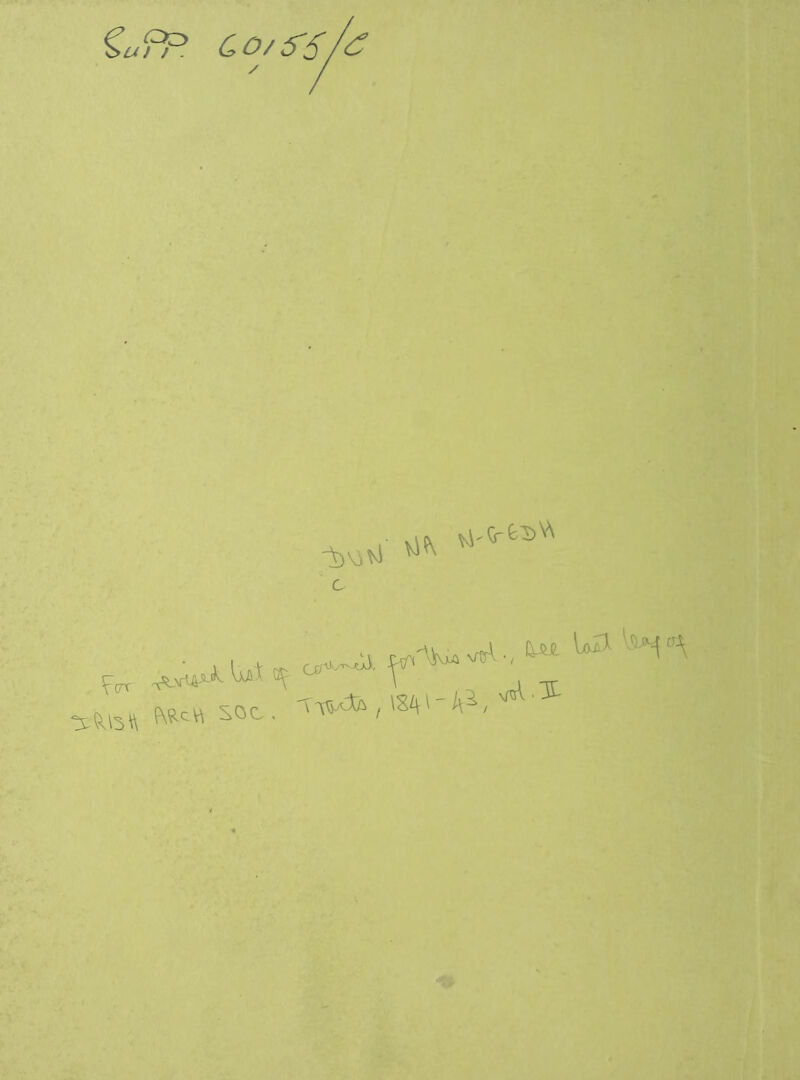 Supp. 60155/c
DUN NA N-GEDH
C
For revised list of council for this vol., see last leaf of
IRISH ARCH SOC. Tracts, 1841-43, vol. II